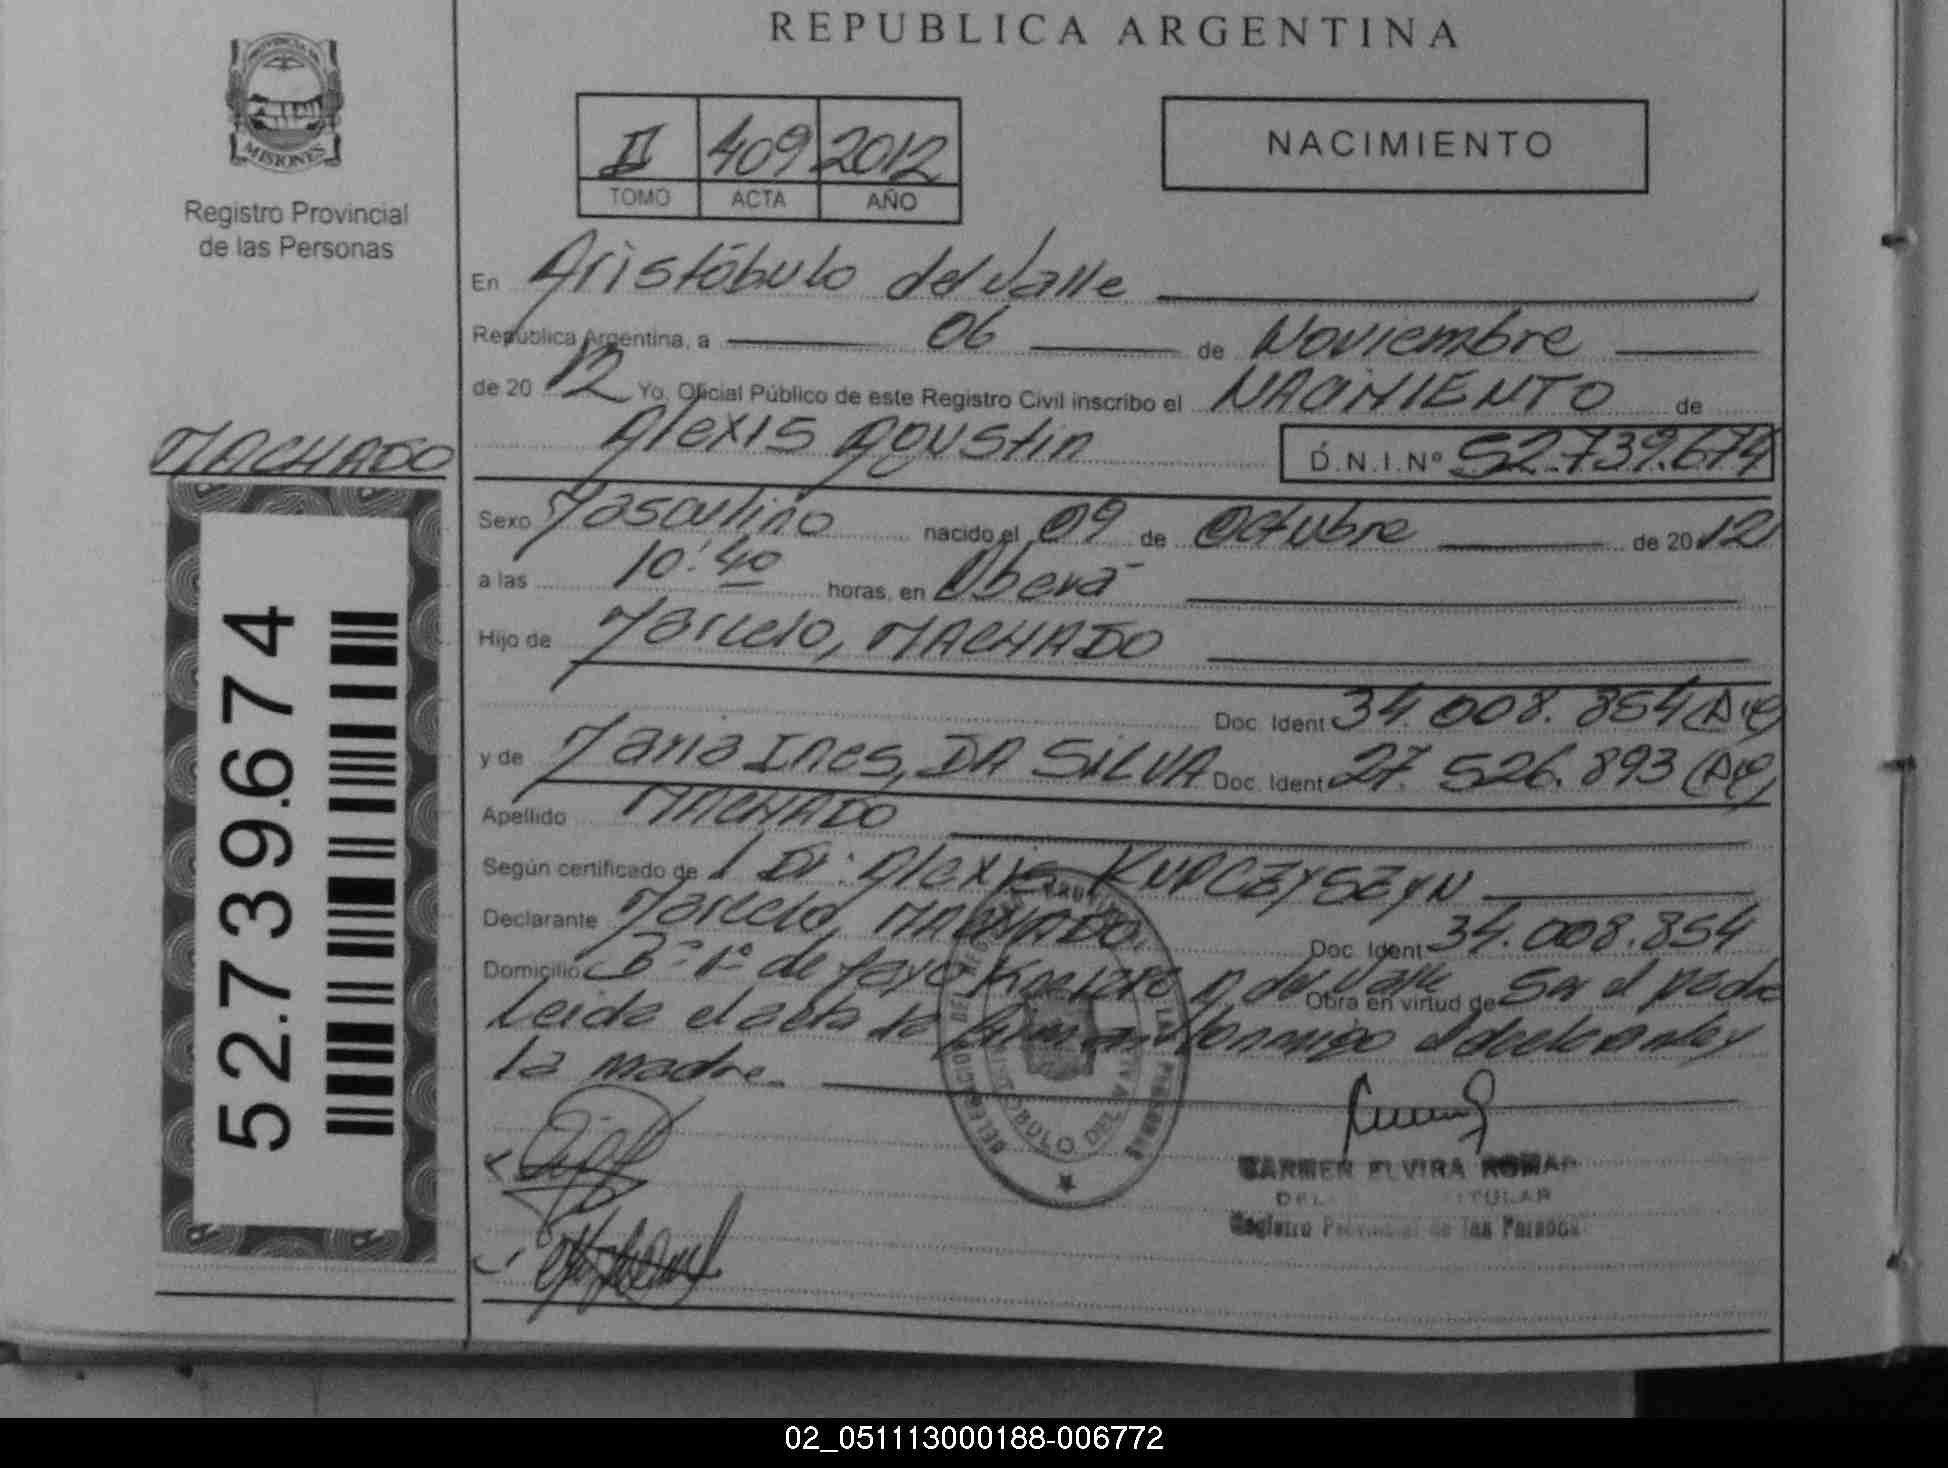 REPUBLICA ARGENTINA
PROVINCIA DE
MISIONES
Registro Provincial
de las Personas
II 409 2012
TOMO ACTA AÑO
NACIMIENTO
En Aristóbulo del Valle
República Argentina, a 06 de Noviembre
de 2012 Yo, Oficial Público de este Registro Civil inscribo el NACIMIENTO de
Alexis Agustin D.N.I.Nº 52.739.674
MACHADO
52.739.674
Sexo Masculino nacido el 09 de Octubre de 2012
a las 10:40 horas, en Oberá
Hijo de Marcelo, MACHADO
Doc. Ident 34.008.854
y de Maria Ines, DA SILVA Doc. Ident 27.526.893
Apellido MACHADO
Según certificado de Dr. Alexis KUPCZYSZYN
Declarante Marcelo, MACHADO Doc. Ident 34.008.854
Domicilio Bº 1º de Mayo A. del Valle Obra en virtud de Ser el padre
Leida el acta la firman conmigo el declarante y
la madre.
ARISTOBULO DEL VALLE
CARMEN ELVIRA
Registro Provincial de las Personas
02_051113000188-006772